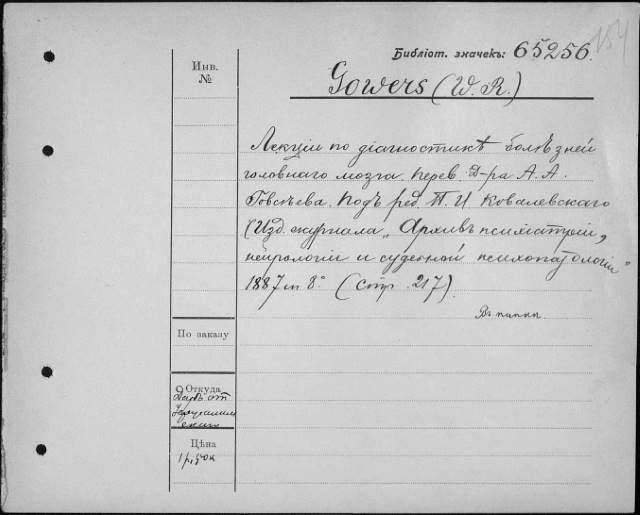 154
Библіот. значекъ: 65256.
Инв. №
Gowers (W. R.)
Лекціи по діагностикѣ болѣзней
головнаго мозга. Перев. Д-ра А. А.
Говсѣева. Подъ ред. П. И Ковалевскаго
(Изд. журнала „Архивъ психіатріи,
нейрологіи и судебной психопатологіи"
1887 in 8° (стр. 217)
Въ папкѣ.
По заказу
Откуда
Даръ от
Цѣна
1 р. 50 к